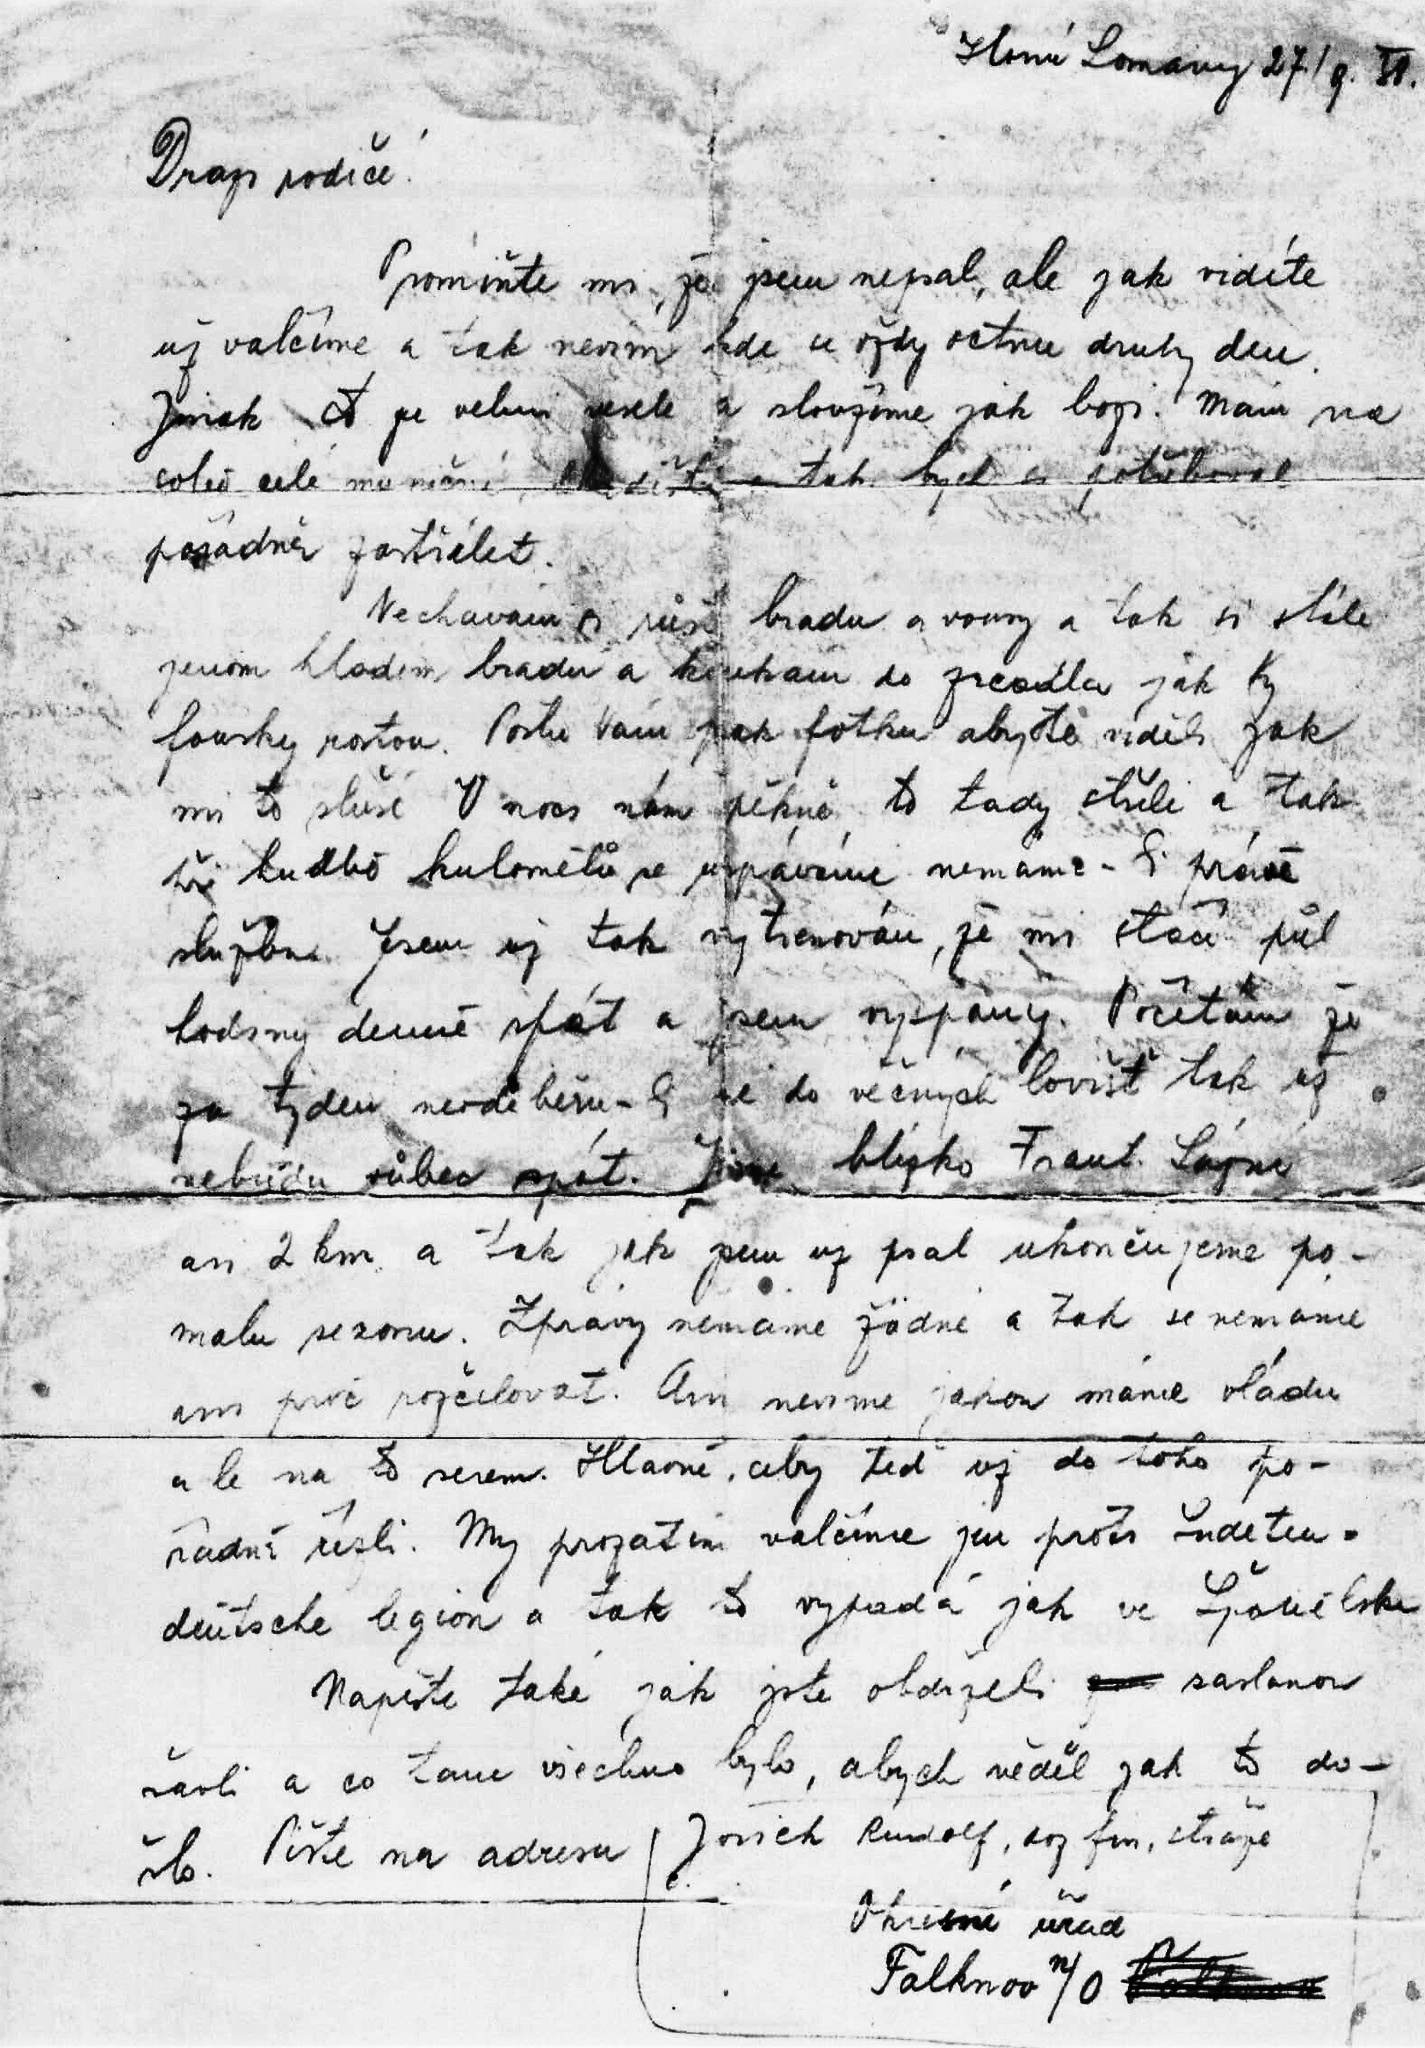 Horní Lomany 27/9. 38.
Drazí rodiče!
Promiňte mi, že jsem nepsal, ale jak vidíte
už valčíme a tak nevím kde se vždy octnu druhý den.
Jinak to je velmi veselé a sloužíme jak bozi. Mám na
sobě celé muniční skladiště a tak bych si potřeboval
pořádně zastřílet.
Nechávám si růst bradu a vousy a tak si stále
jenom hladím bradu a koukám do zrcadla jak ty
fousky rostou. Pošlu Vám pak fotku abyste viděli jak
mi to sluší. V noci nám pěkně to tady střílí a tak
při hudbě kulometů se uspáváme nemáme-li právě
službu. Jsem už tak vytrenován, že mi stačí půl
hodiny denně spát a jsem vyspaný. Počítám že
za týden neodeberu-li se do věčných lovišť tak už
nebudu vůbec spát. Jsme blízko Frant. Lázní
asi 2 km a tak jak jsem už psal ukončujeme po-
malu sezonu. Zprávy nemáme žádné a tak se nemáme
ani proč rozčilovat. Ani nevíme jakou máme vládu
ale na to serem. Hlavně, aby teď už do toho po-
řádně řízli. My prozatím valčíme jen proti Sudeten-
deutsche legion a tak to vypadá jak ve Španělsku
Napište také, jak jste obdrželi zaslanou
várli a co tam všechno bylo, abych věděl jak to do-
šlo. Pište na adresu Josich Rudolf, doz fin, stráže
Okresní úřad
Falknov n/O